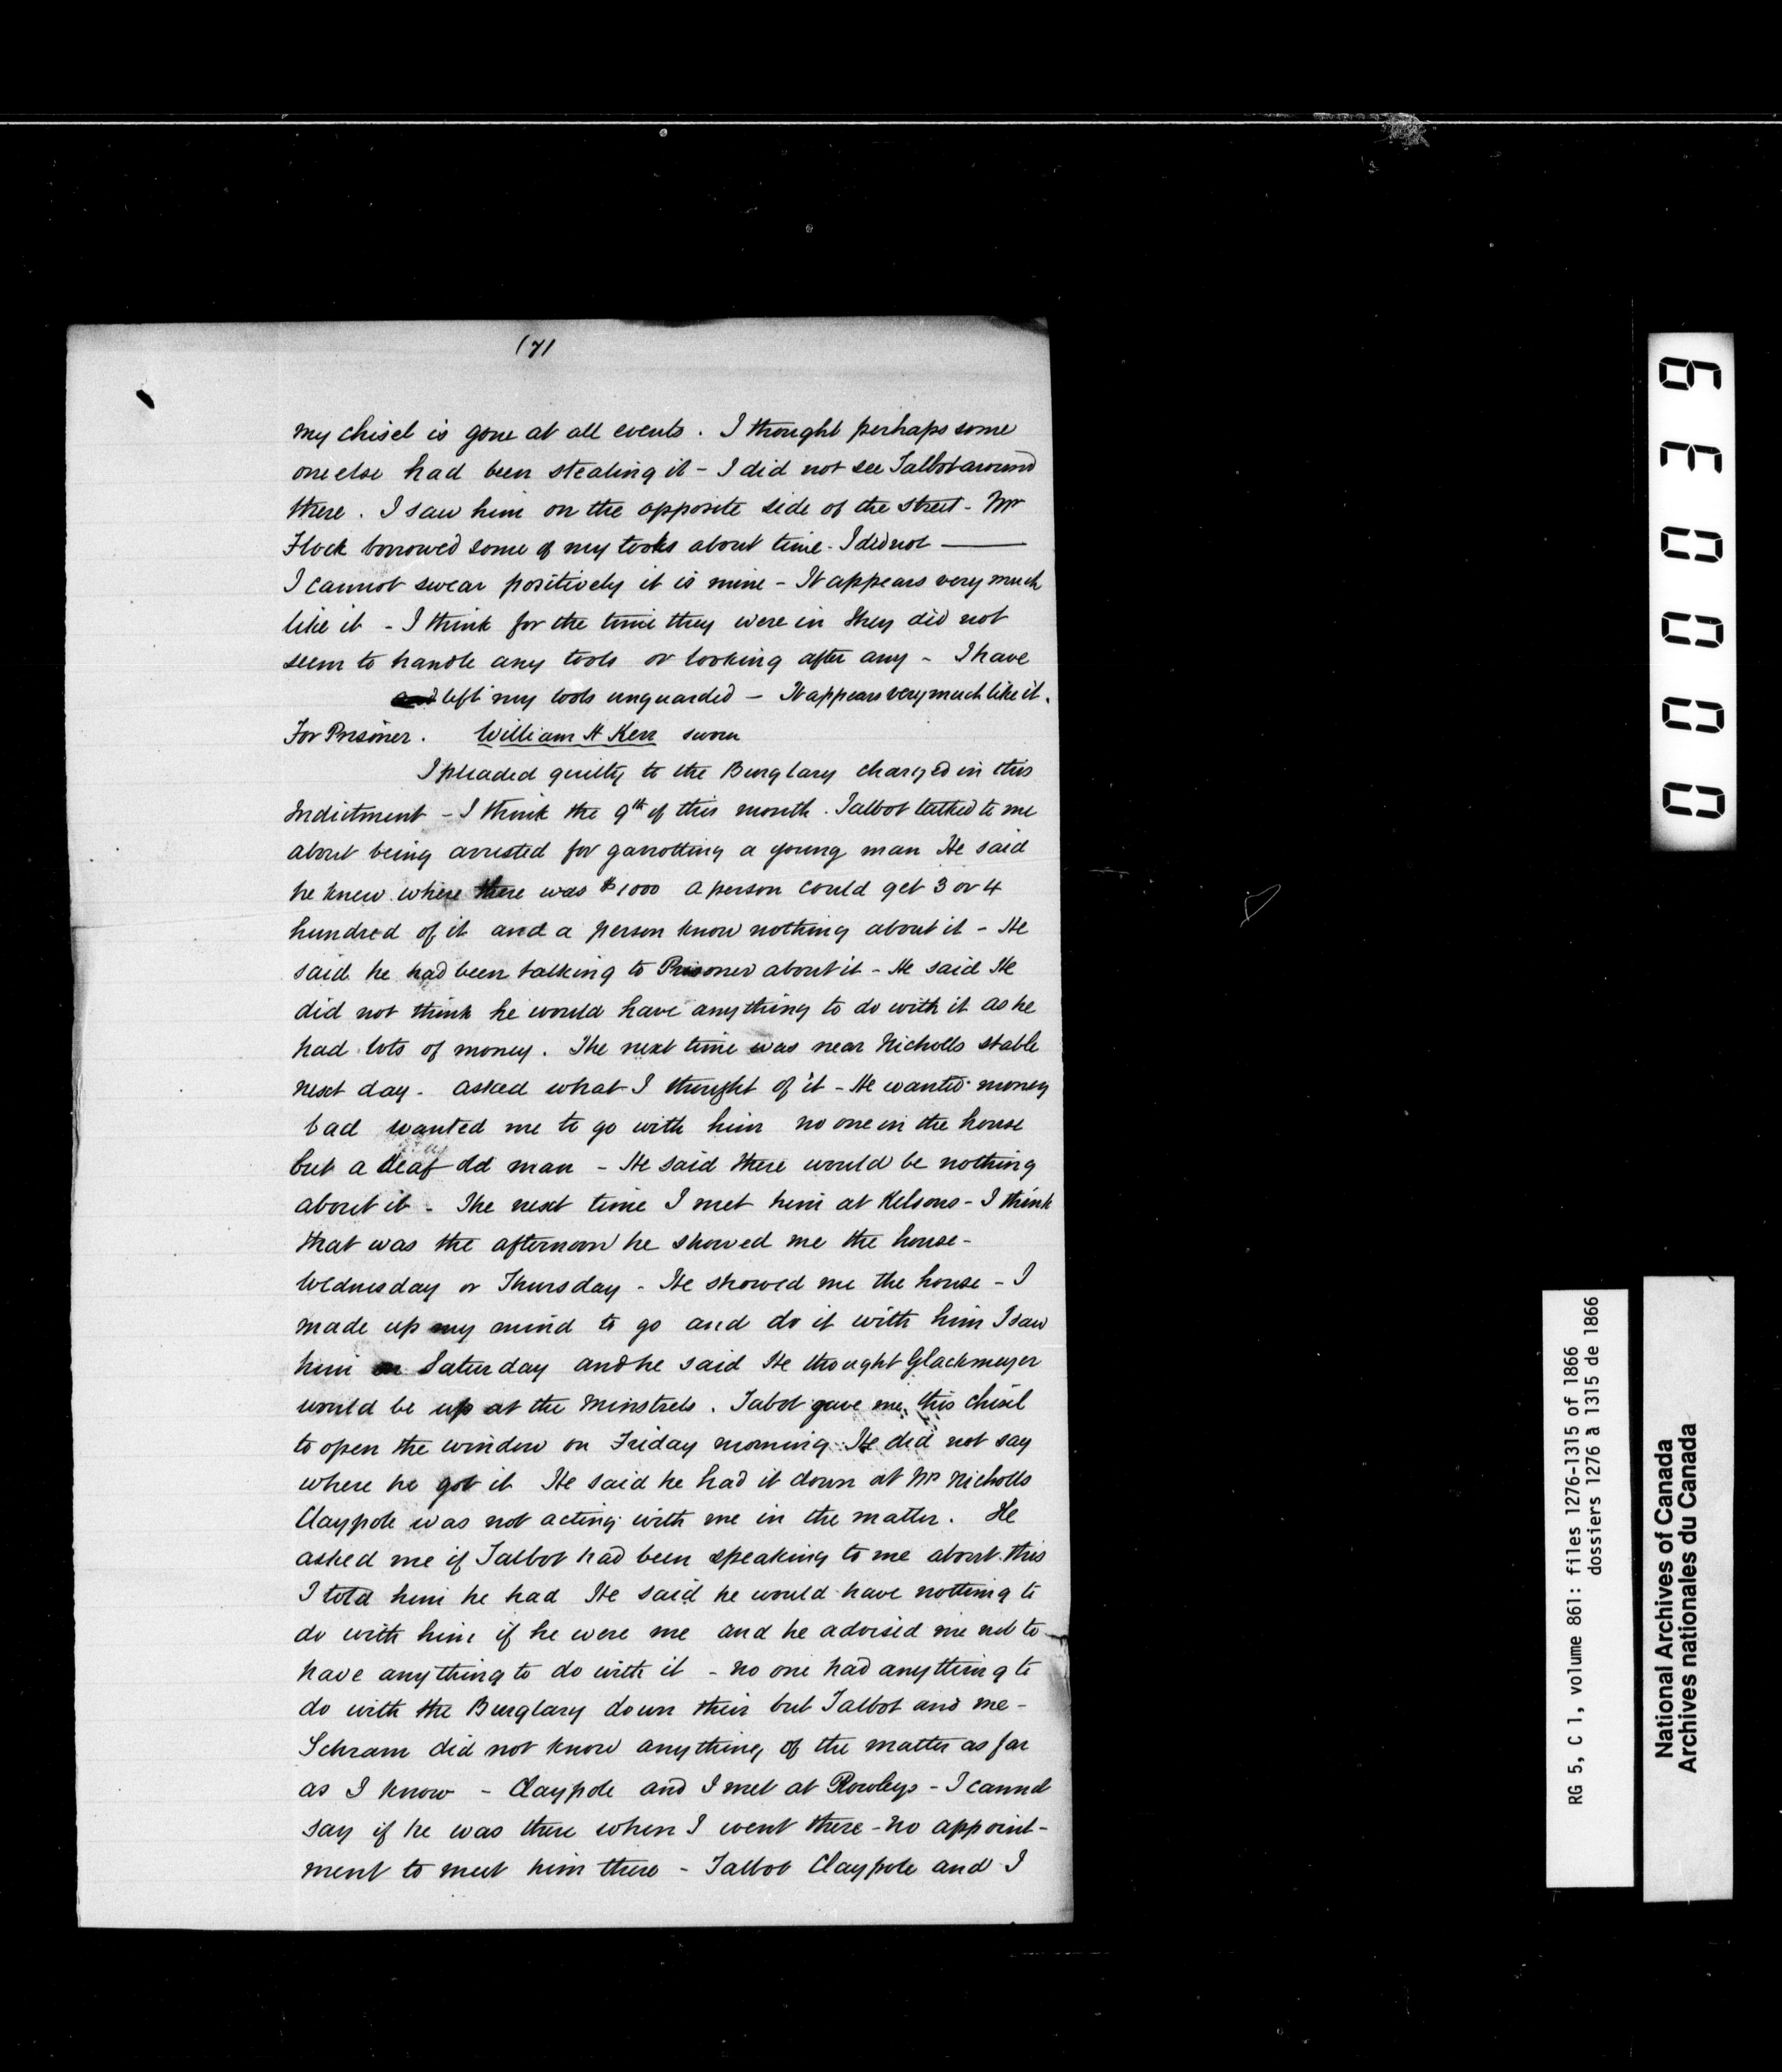 (7)
my chisel is gone at all events. I thought perhaps some
one else had been stealing it - I did not see Talbot around
there. I saw him on the opposite side of the street - Mr
Flock borrowed some of my tools about time - I did not ———
I cannot swear positively it is mine - It appears very much
like it - I think for the time they were in they did not
seem to handle any tools or looking after any - I have
left my tools unguarded - It appears very much like it.
For Prisoner. William H Kerr sworn
I pleaded guilty to the Burglary charged in this
Indictment - I think the 9th of this month. Talbot talked to me
about being arrested for garrotting a young man He said
he knew where there was $1000 a person could get 3 or 4
hundred of it and a person know nothing about it - He
said he had been talking to Prisoner about it - He said He
did not think he would have anything to do with it as he
had lots of money. The next time was near Nicholls stable
next day - asked what I thought of it - He wanted money
bad wanted me to go with him no one in the house
but a deaf old man - He said there would be nothing
about it - The next time I met him at Kelsons - I think
that was the afternoon he showed me the house -
Wednesday or Thursday - He showed me the house - I
made up my mind to go and do it with him I saw
him on Saturday and he said He thought Glackmeyer
would be up at the Minstrels. Tabot gave me this chisel
to open the window on Friday morning He did not say
where he got it He said he had it down at Mr Nicholls
Claypole was not acting with me in the matter. He
asked me if Talbot had been speaking to me about this
I told him he had He said he would have nothing to
do with him if he were me and he advised me not to
have anything to do with it - no one had anything to
do with the Burglary down their but Talbot and me -
Schram did not know anything of the matter as far
as I know - Claypole and I met at Rowleys - I cannot
say if he was there when I went there - no appoint-
ment to meet him there - Talbot Claypole and I
000039
RG 5, C 1, volume 861: files 1276-1315 of 1866
dossiers 1276 à 1315 de 1866
National Archives of Canada
Archives nationales du Canada